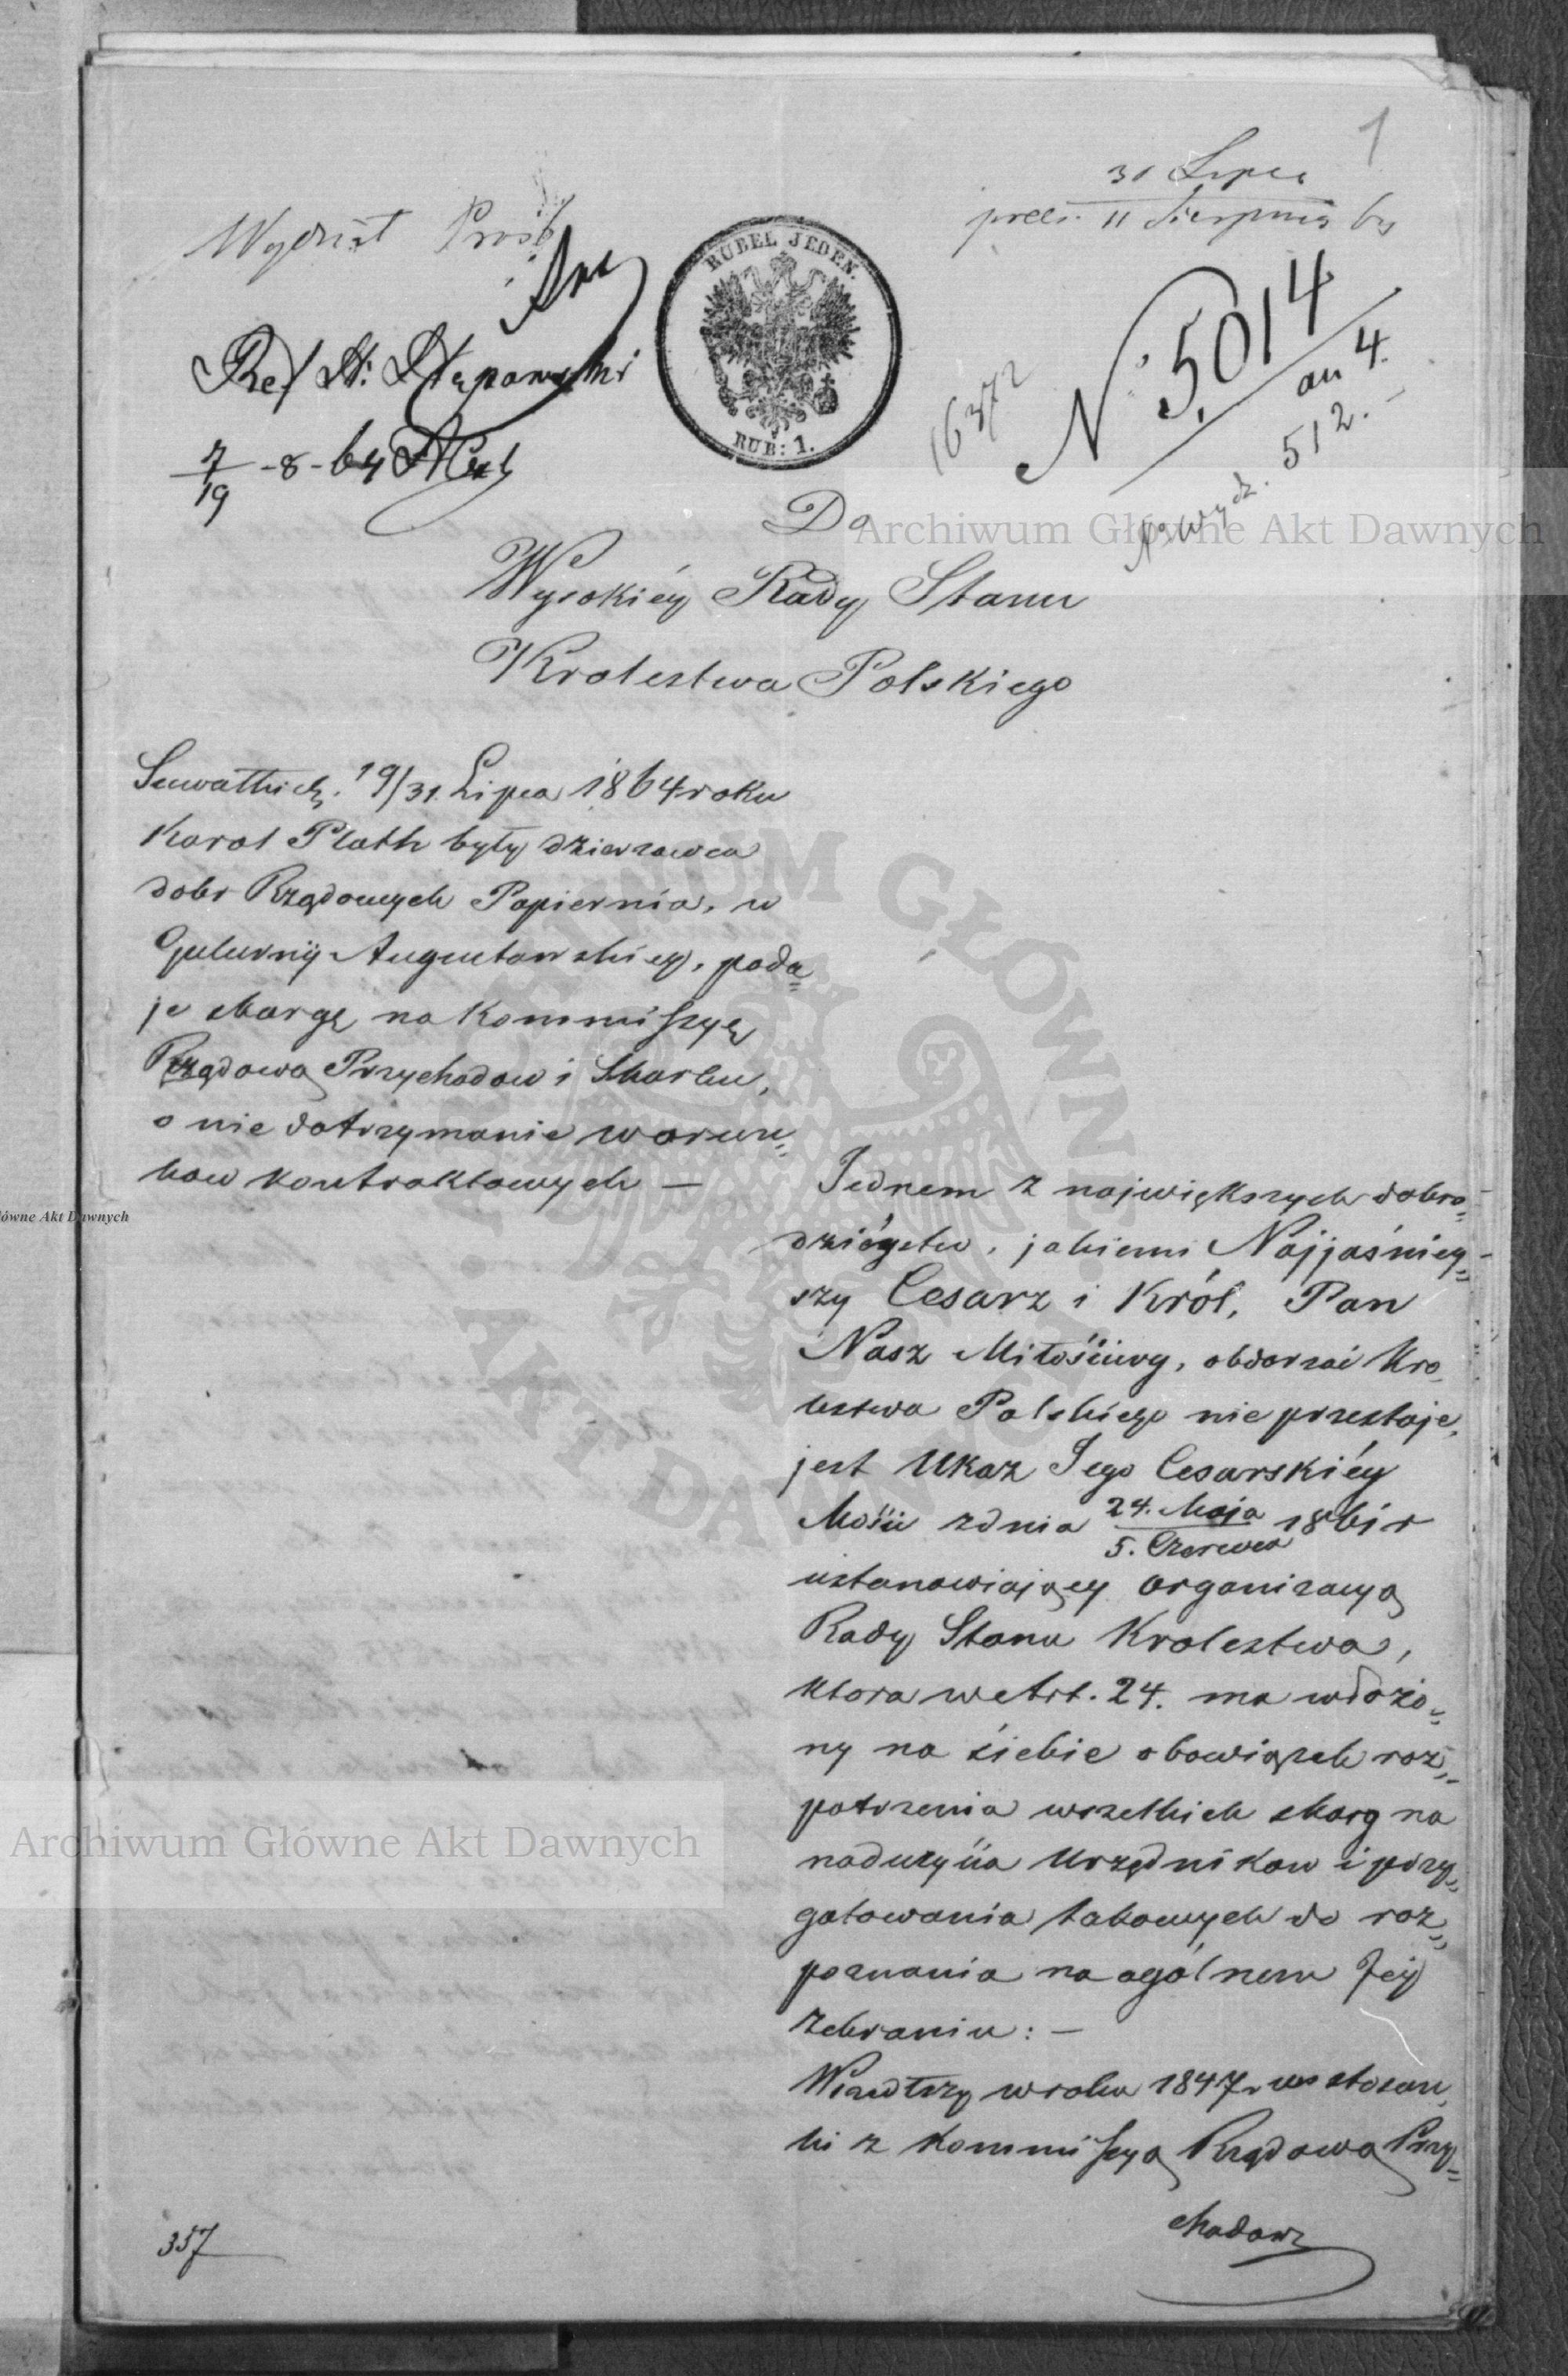 1
31 Lipca
prez. 11 Sierpnia
Wydział Próśb
RUBEL JEDEN.
RUB: 1.
N. 5014
an 4.
16372
N. wydz. 512.
Ref. St:
7/19 -8- 64
Do
Wysokiéy Rady Stanu
Krolestwa Polskiego
19/31. Lipca 1864 roku
Karol Plath były dzierzawca
dobr Rządowych Papiernia, w
Gubernij Augustowskiey, poda=
je skargę na Kommissyę
Rządową Przychodow i Skarbu,
o nie dotrzymanie warun=
kow kontraktowych —
Jednem z największych dobro=
dziéystw, jakiemi Najjaśniey=
szy Cesarz i Król, Pan
Nasz Miłościwy, obdarzać Kro=
lestwa Polskiego nie przestaje,
jest Ukaz Jego Cesarskiéy
Mości zdnia 24. Maja / 5. Czerwca 1861 r
ustanawiający organizacyą
Rady Stanu Krolestwa,
ktora w Art. 24. ma włożo=
ny na siebie obowiązek roz=
patrzenia wszelkich skarg na
naduzycia Urzędnikow i przy=
gotowania takowych do roz=
poznania na ogólnem Jey
zebraniu: —
Wszedłszy w roku 1847 w stosun=
ki z Kommissyą Rządową Przy=
chodow
357
Archiwum Główne Akt Dawnych
Archiwum Główne Akt Dawnych
główne Akt Dawnych
ARCHIWUM GŁÓWNE · AKT DAWNYCH ·